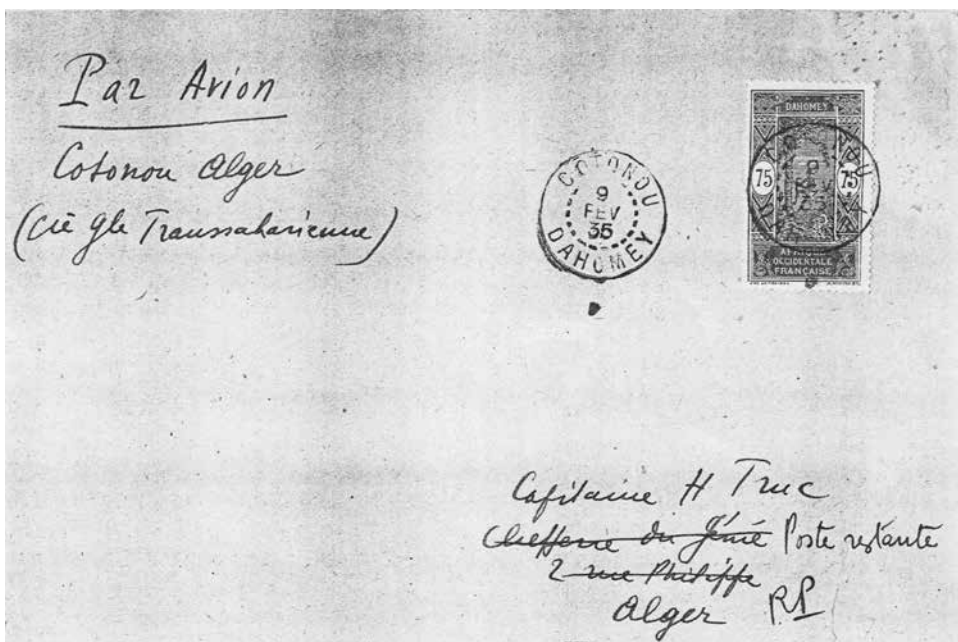 Par Avion
Cotonou Alger
(Cie Gle Transsaharienne)
COTONOU
9
FEV
35
DAHOMEY
DAHOMEY
75 75
AFRIQUE
OCCIDENTALE
FRANÇAISE
COTONOU
9
FEV
35
Capitaine H Truc
Chefferie du Génie Poste restante
2 rue Philippe
Alger RP